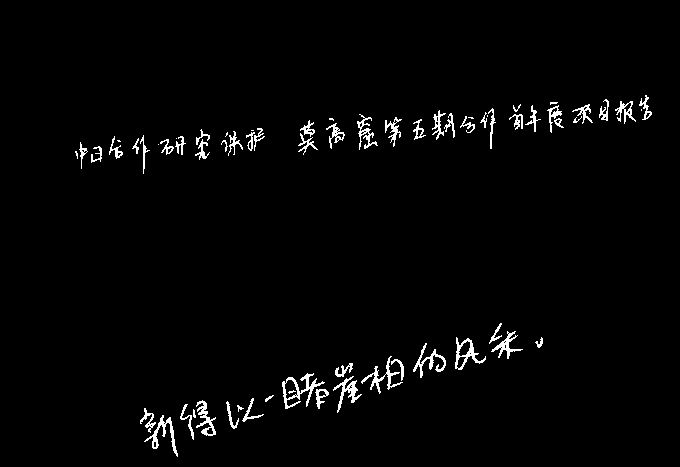 中日合作研究保护 莫高窟第五期合作首年度项目报告
新得以一睹崖柏的风采。